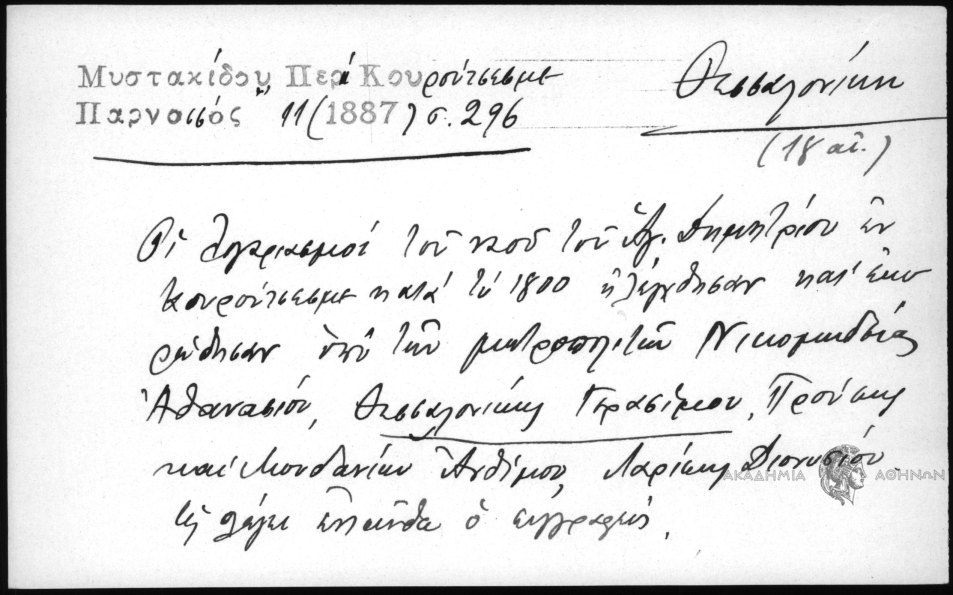 Μυστακίδου, Περὶ Κουρούτσεσμε
Παρνασσός 11 (1887) σ. 296
Θεσσαλονίκη
(18 αἰ.)
Οἱ λογαριασμοὶ τοῦ ναοῦ τοῦ Ἁγ. Δημητρίου ἐν
Κουρούτσεσμε κατὰ τὸ 1800 ἠλέγχθησαν καὶ ἐκυ
ρώθησαν ὑπὸ τῶν μητροπολιτῶν Νικομηδείας
Ἀθανασίου, Θεσσαλονίκης Γερασίμου, Προύσης
καὶ Μουδανίων Ἀνθίμου, Λαρίσης Διονυσίου
ὡς λέγει ἐνταῦθα ὁ συγγραφεύς.
ΑΚΑΔΗΜΙΑ ΑΘΗΝΩΝ